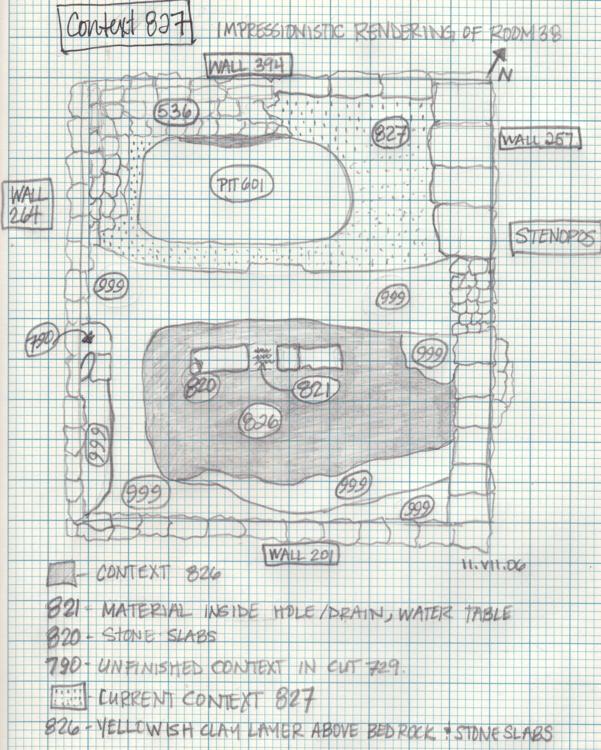 Context 827
IMPRESSIONISTIC RENDERING OF ROOM 38
WALL 394
N
536
827
WALL 257
PIT 601
WALL
264
STENOPOS
999
999
790
999
820
821
826
999
999
999
999
WALL 201
11.VII.06
- CONTEXT 826
821 - MATERIAL INSIDE HOLE/DRAIN, WATER TABLE
820 - STONE SLABS
790 - UNFINISHED CONTEXT IN CUT 729.
- CURRENT CONTEXT 827
826 - YELLOWISH CLAY LAYER ABOVE BEDROCK & STONE SLABS